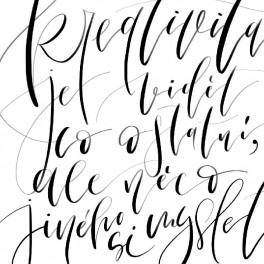 kreativita
je vidět
co ostatní,
ale něco
jiného si myslet